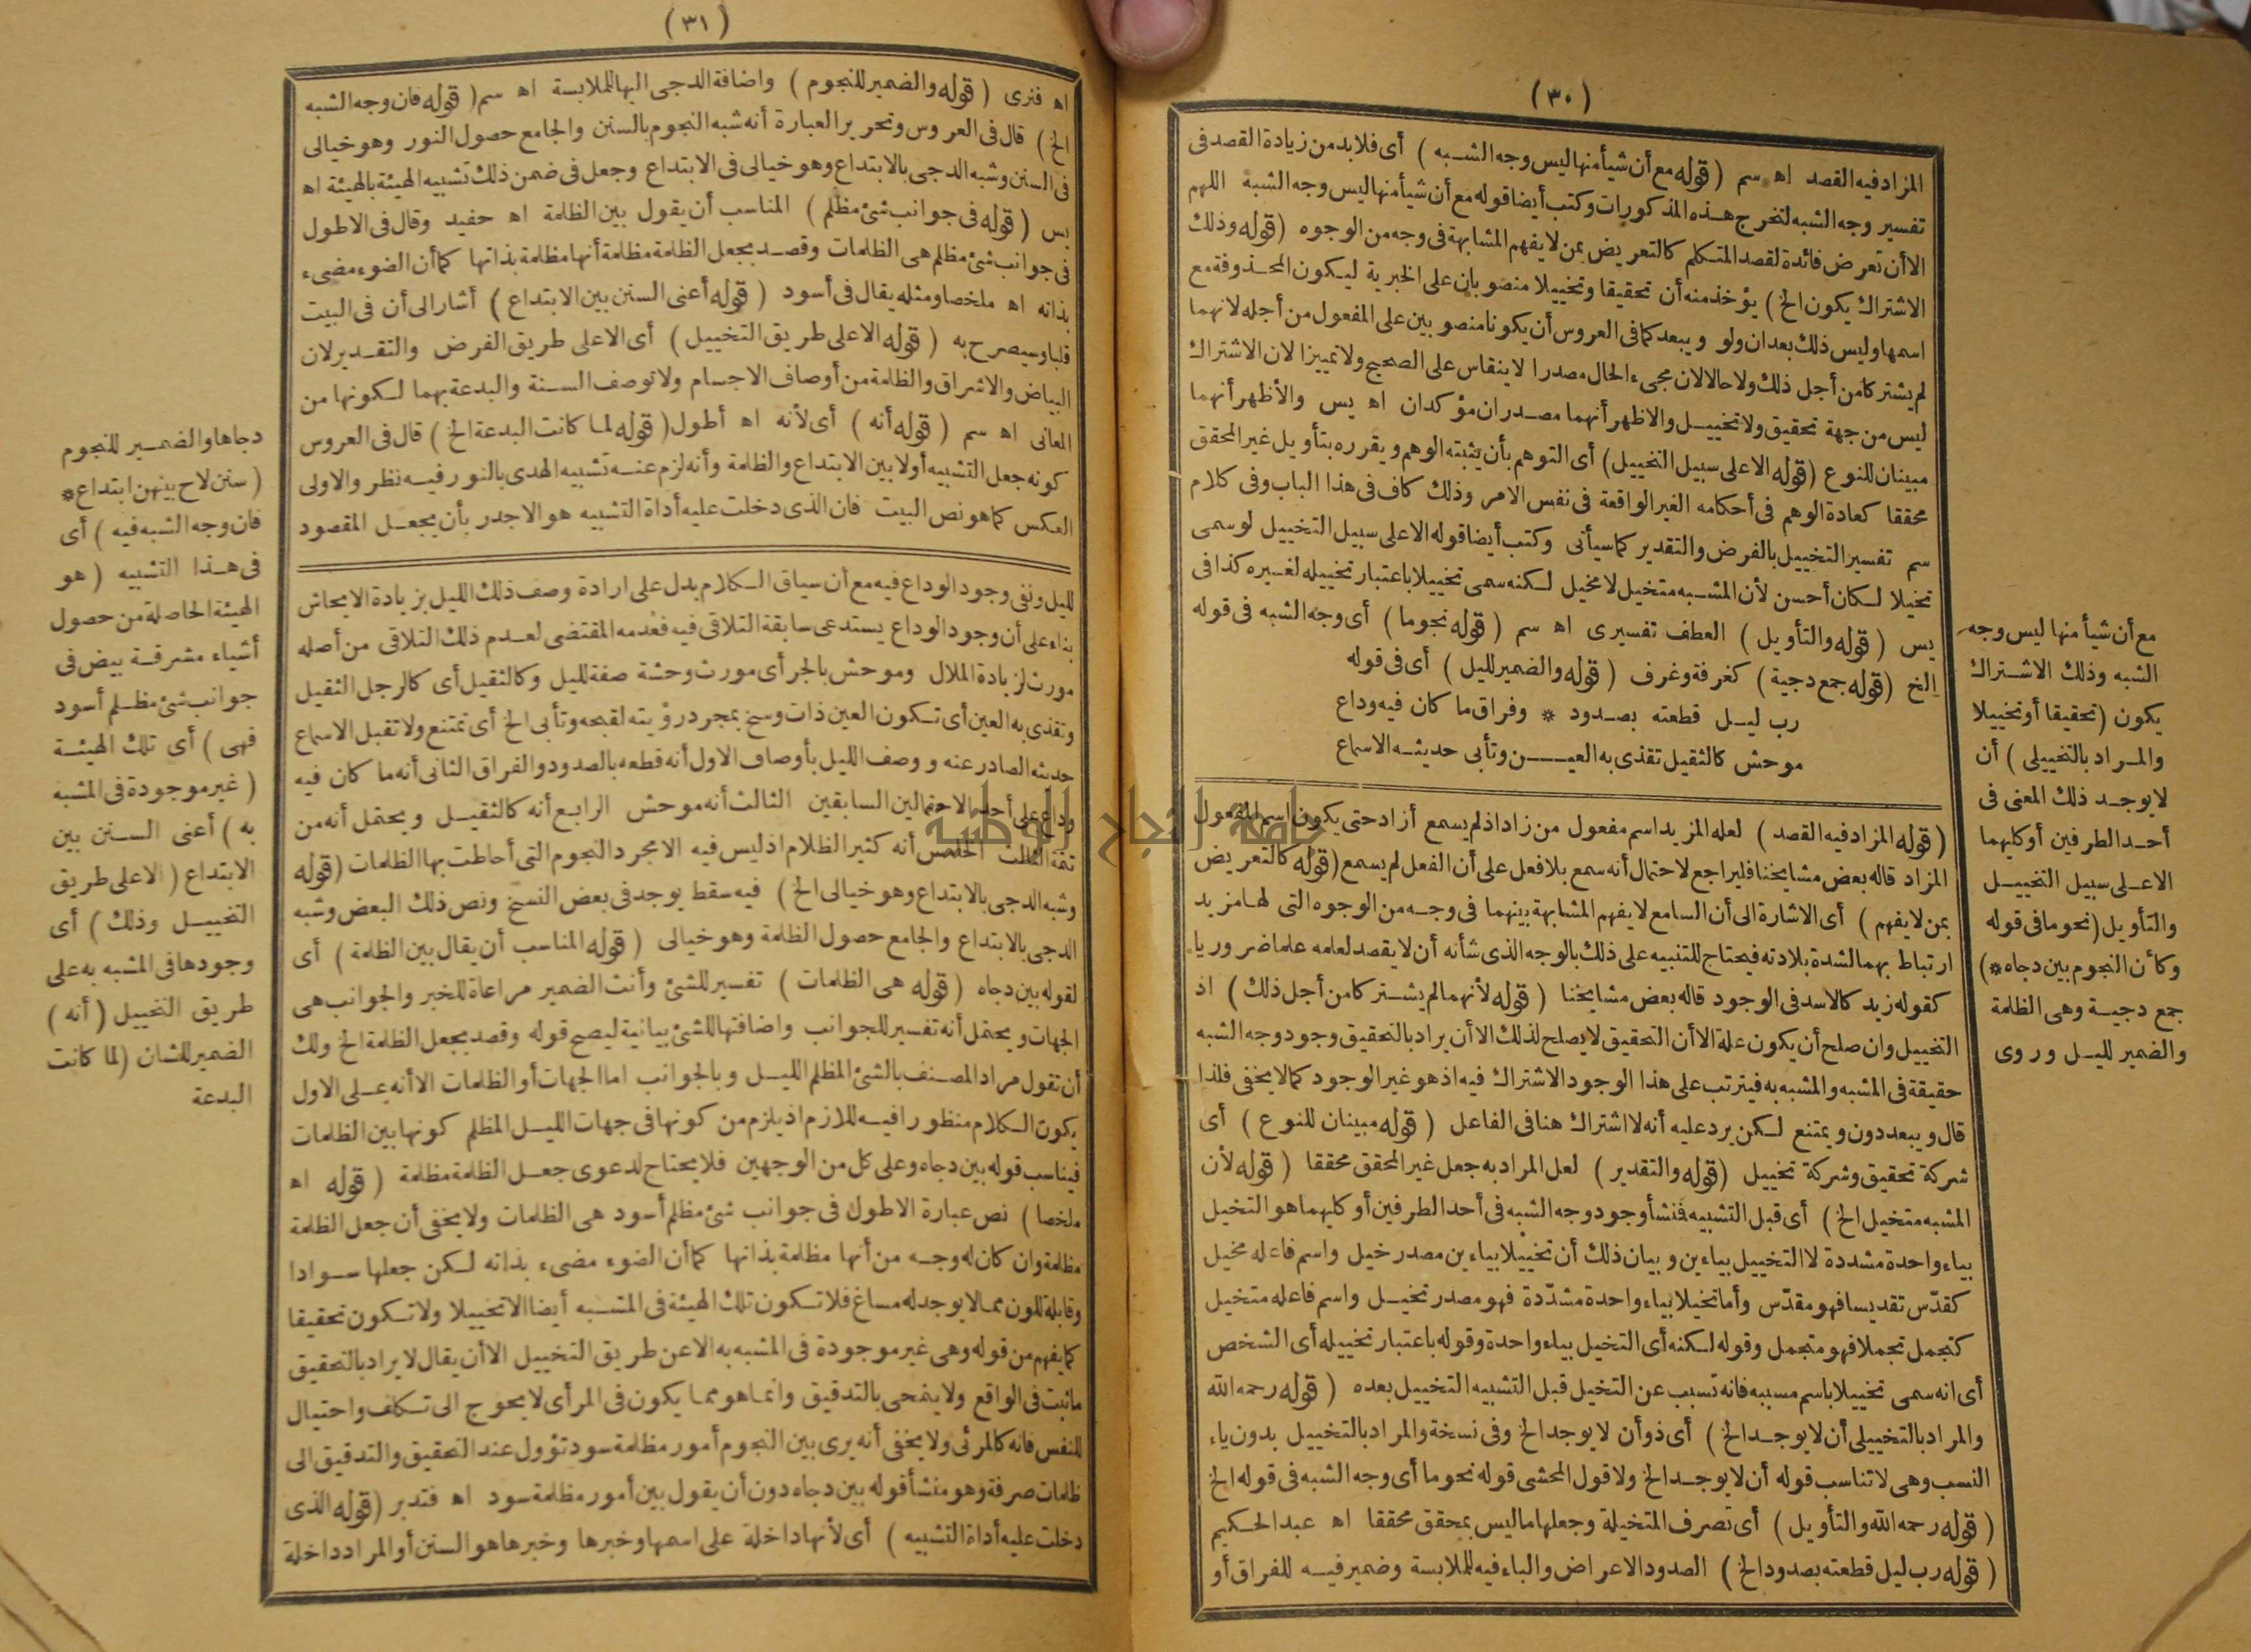 (٣٠)
المزاد فيه القصد اه سم (قوله مع أن شيأ منها ليس وجه الشبه) أى فلا بد من زيادة القصد فى
تفسير وجه الشبه لتخرج هذه المذكورات وكتب أيضا قوله مع أن شيأ منها ليس وجه الشبه اللهم
الا أن تعرض فائدة لقصد المتكلم كالتعريض بمن لا يفهم المشابهة فى وجه من الوجوه (قوله وذلك
الاشتراك يكون الخ) يؤخذ منه أن تحقيقا وتخييلا منصوبان على الخبرية ليكون المحذوفة مع
اسمها وليس ذلك بعد ان ولو ويبعد كما فى العروس أن يكونا منصوبين على المفعول من أجله لانهما
لم يشتركا من أجل ذلك ولا حالا لان مجىء الحال مصدرا لا ينقاس على الصحيح ولا تمييزا لان الاشتراك
ليس من جهة تحقيق ولا تخييل والاظهر أنهما مصدران مؤكدان اه يس والأظهر أنهما
مبينان للنوع (قوله الا على سبيل التخييل) أى التوهم بأن يثبته الوهم ويقرره بتأويل غير المحقق
محققا كعادة الوهم فى أحكامه الغير الواقعة فى نفس الامر وذلك كاف فى هذا الباب وفى كلام
سم تفسير التخييل بالفرض والتقدير كما سيأتى وكتب أيضا قوله الا على سبيل التخييل لو سمى
تخيلا لكان أحسن لأن المشبه متخيل لا مخيل لكنه سمى تخييلا باعتبار تخييله لغيره كذا فى
يس (قوله والتأويل) العطف تفسيرى اه سم (قوله نجوما) أى وجه الشبه فى قوله
الخ (قوله جمع دجية) كغرفة وغرف (قوله والضمير لليل) أى فى قوله
رب ليل قطعته بصدود * وفراق ما كان فيه وداع
موحش كالثقيل تقذى به العين وتأبى حديثه الاسماع
(قوله المزاد فيه القصد) لعله المزيد اسم مفعول من زاد اذ لم يسمع أزاد حتى يكون اسم المفعول
المزاد قاله بعض مشايخنا فليراجع لاحتمال أنه سمع بلا فعل على أن الفعل لم يسمع (قوله كالتعريض
بمن لا يفهم) أى الاشارة الى أن السامع لا يفهم المشابهة بينهما فى وجه من الوجوه التى لها مزيد
ارتباط بهما لشدة بلادته فيحتاج للتنبيه على ذلك بالوجه الذى شأنه أن لا يقصد لعلمه علما ضروريا
كقوله زيد كالاسد فى الوجود قاله بعض مشايخنا (قوله لأنهما لم يشتركا من أجل ذلك) اذ
التخييل وان صلح أن يكون علة الا أن التحقيق لا يصلح لذلك الا أن يراد بالتحقيق وجود وجه الشبه
حقيقة فى المشبه والمشبه به فيترتب على هذا الوجود الاشتراك فيه اذ هو غير الوجود كما لا يخفى فلذا
قال ويبعد دون ويمتنع لكن يرد عليه أنه لا اشتراك هنا فى الفاعل (قوله مبينان للنوع) أى
شركة تحقيق وشركة تخييل (قوله والتقدير) لعل المراد به جعل غير المحقق محققا (قوله لأن
المشبه متخيل الخ) أى قبل التشبيه فنشأ وجود وجه الشبه فى أحد الطرفين أو كليهما هو التخيل
بياء واحدة مشددة لا التخييل بياءين وبيان ذلك أن تخييلا بياءين مصدر خيل واسم فاعله مخيل
كقدّس تقديسا فهو مقدّس وأما تخيلا بياء واحدة مشدّدة فهو مصدر تخيل واسم فاعله متخيل
كتجمل تجملا فهو متجمل وقوله لكنه أى التخيل بياء واحدة وقوله باعتبار تخييله أى الشخص
أى انه سمى تخييلا باسم مسببه فانه تسبب عن التخيل قبل التشبيه التخييل بعده (قوله رحمه الله
والمراد بالتخييلى أن لا يوجد الخ) أى ذو أن لا يوجد الخ وفى نسخة والمراد بالتخييل بدون ياء
النسب وهى لا تناسب قوله أن لا يوجد الخ ولا قول المحشى قوله نحو ما أى وجه الشبه فى قوله الخ
(قوله رحمه الله والتأويل) أى تصرف المتخيلة وجعلها ما ليس بمحقق محققا اه عبد الحكيم
(قوله رب ليل قطعته بصدود الخ) الصدود الاعراض والباء فيه للملابسة وضمير فيه للفراق أو
مع أن شيأ منها ليس وجه
الشبه وذلك الاشتراك
يكون (تحقيقا أو تخييلا
والمراد بالتخييلى) أن
لا يوجد ذلك المعنى فى
أحد الطرفين أو كليهما
الا على سبيل التخييل
والتأويل (نحو ما فى قوله
وكأن النجوم بين دجاه*)
جمع دجية وهى الظلمة
والضمير لليل وروى
(٣١)
اه فنرى (قوله والضمير للنجوم) واضافة الدجى اليها للملابسة اه سم (قوله فان وجه الشبه
الخ) قال فى العروس وتحرير العبارة أنه شبه النجوم بالسنن والجامع حصول النور وهو خيالى
فى السنن وشبه الدجى بالابتداع وهو خيالى فى الابتداع وجعل فى ضمن ذلك تشبيه الهيئة بالهيئة اه
يس (قوله فى جوانب شئ مظلم) المناسب أن يقول بين الظلمة اه حفيد وقال فى الاطول
فى جوانب شئ مظلم هى الظلمات وقصد بجعل الظلمة مظلمة أنها مظلمة بذاتها كما أن الضوء مضىء
بذاته اه ملخصا ومثله يقال فى أسود (قوله أعنى السنن بين الابتداع) أشار الى أن فى البيت
قلبا وسيصرح به (قوله الا على طريق التخييل) أى الا على طريق الفرض والتقدير لان
البياض والاشراق والظلمة من أوصاف الاجسام ولا توصف السنة والبدعة بهما لكونها من
المعانى اه سم (قوله أنه) أى لأنه اه أطول (قوله لما كانت البدعة الخ) قال فى العروس
كونه جعل التشبيه أولا بين الابتداع والظلمة وأنه لزم عنه تشبيه الهدى بالنور فيه نظر والاولى
العكس كما هو نص البيت فان الذى دخلت عليه أداة التشبيه هو الاجدر بأن يجعل المقصود
لليل ونفى وجود الوداع فيه مع أن سياق الكلام يدل على ارادة وصف ذلك الليل بزيادة الايحاش
بناء على أن وجود الوداع يستدعى سابقة التلاقى فيه فعدمه المقتضى لعدم ذلك التلاقى من أصله
مورث لزيادة الملال وموحش بالجر أى مورث وحشة صفة لليل وكالثقيل أى كالرجل الثقيل
وتقذى به العين أى تكون العين ذات وسخ بمجرد رؤيته لقبحه وتأبى الخ أى تمتنع ولا تقبل الاسماع
حديثه الصادر عنه ووصف الليل بأوصاف الاول أنه قطعه بالصدود والفراق الثانى أنه ما كان فيه
وداع على أحد الاحتمالين السابقين الثالث أنه موحش الرابع أنه كالثقيل ويحتمل أنه من
تتمة الثالث الخامس أنه كثير الظلام اذ ليس فيه الا مجرد النجوم التى أحاطت بها الظلمات (قوله
وشبه الدجى بالابتداع وهو خيالى الخ) فيه سقط يوجد فى بعض النسخ ونص ذلك البعض وشبه
الدجى بالابتداع والجامع حصول الظلمة وهو خيالى (قوله المناسب أن يقال بين الظلمة) أى
لقوله بين دجاه (قوله هى الظلمات) تفسير للشئ وأنث الضمير مراعاة للخبر والجوانب هى
الجهات ويحتمل أنه تفسير للجوانب واضافتها للشئ بيانية ليصح قوله وقصد بجعل الظلمة الخ ولك
أن تقول مراد المصنف بالشئ المظلم الليل وبالجوانب اما الجهات أو الظلمات الا أنه على الاول
يكون الكلام منظورا فيه للازم اذ يلزم من كونها فى جهات الليل المظلم كونها بين الظلمات
فيناسب قوله بين دجاه وعلى كل من الوجهين فلا يحتاج لدعوى جعل الظلمة مظلمة (قوله اه
ملخصا) نص عبارة الاطول فى جوانب شئ مظلم أسود هى الظلمات ولا يخفى أن جعل الظلمة
مظلمة وان كان له وجه من أنها مظلمة بذاتها كما أن الضوء مضىء بذاته لكن جعلها سوادا
وقابلة للون مما لا يوجد له مساغ فلا تكون تلك الهيئة فى المشبه أيضا الا تخييلا ولا تكون تحقيقا
كما يفهم من قوله وهى غير موجودة فى المشبه به الا عن طريق التخييل الا أن يقال لا يراد بالتحقيق
ما ثبت فى الواقع ولا ينمحى بالتدقيق وانما هو مما يكون فى المرأى لا يحوج الى تكلف واحتيال
للنفس فانه كالمرئى ولا يخفى أنه يرى بين النجوم أمور مظلمة سود تؤول عند التحقيق والتدقيق الى
ظلمات صرفة وهو منشأ قوله بين دجاه دون أن يقول بين أمور مظلمة سود اه فتدبر (قوله الذى
دخلت عليه أداة التشبيه) أى لأنها داخلة على اسمها وخبرها وخبرها هو السنن أو المراد داخلة
دجاها والضمير للنجوم
(سنن لاح بينهن ابتداع*
فان وجه الشبه فيه) أى
فى هذا التشبيه (هو
الهيئة الحاصلة من حصول
أشياء مشرقة بيض فى
جوانب شئ مظلم أسود
فهى) أى تلك الهيئة
(غير موجودة فى المشبه
به) أعنى السنن بين
الابتداع (الا على طريق
التخييل وذلك) أى
وجودها فى المشبه به على
طريق التخييل (أنه)
الضمير للشان (لما كانت
البدعة
جامعة النجاح الوطنية